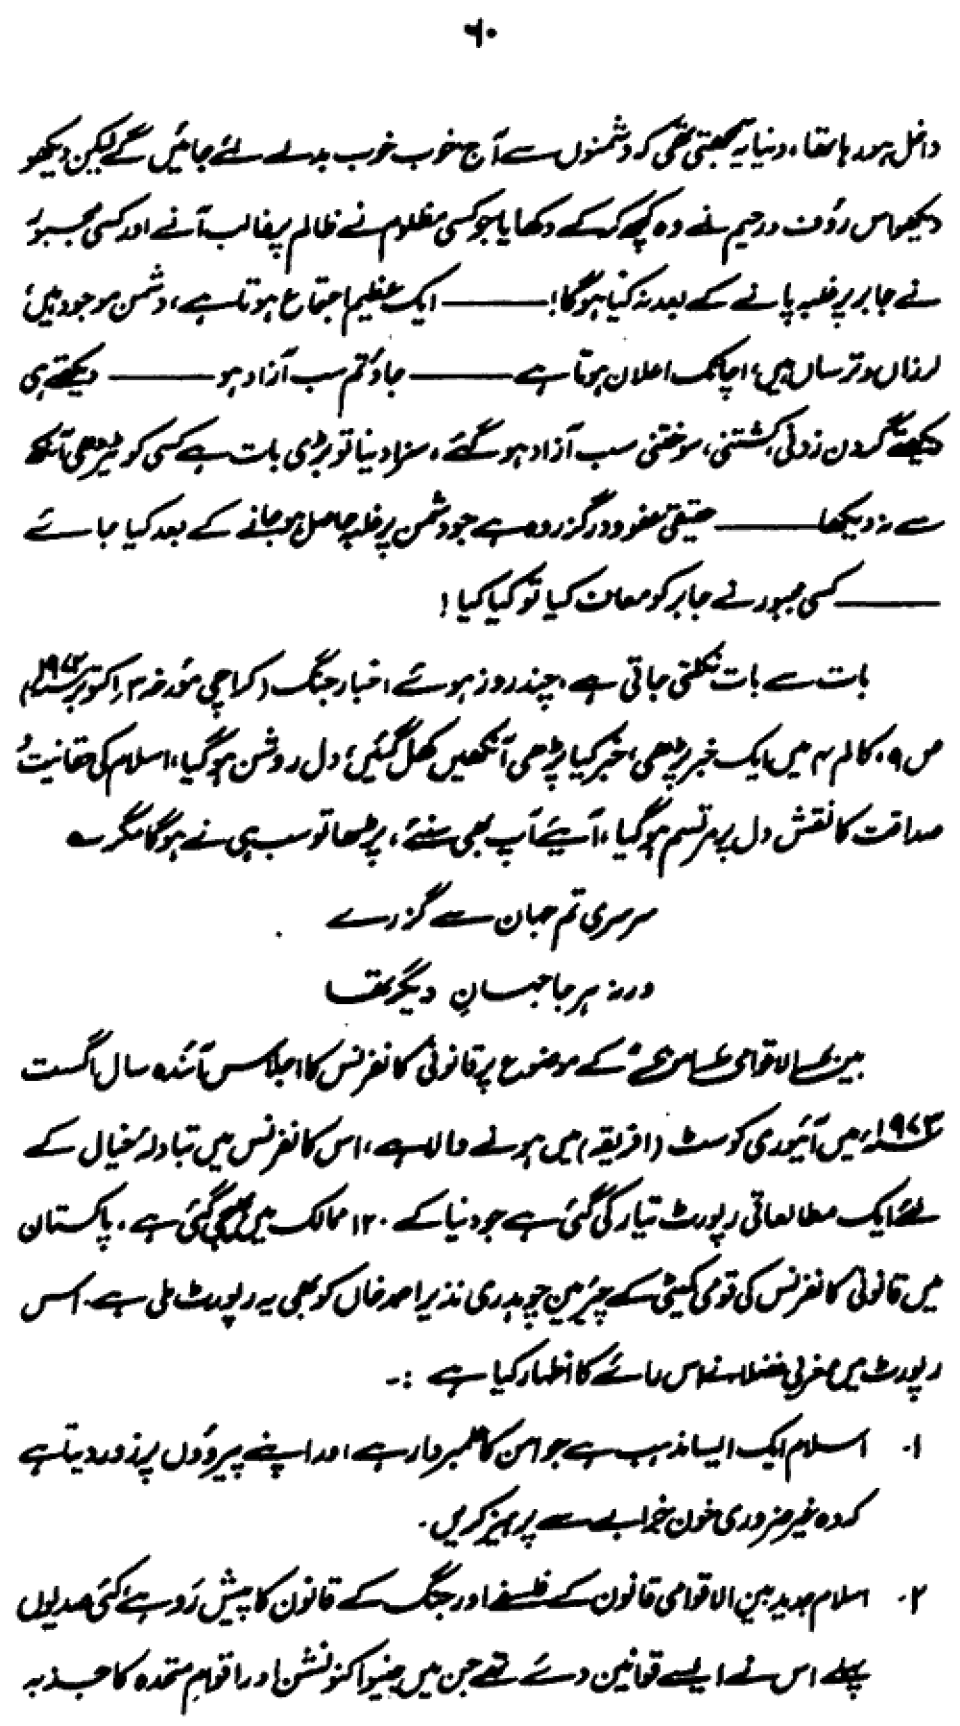 ۶۰
داخل ہو رہا تھا، دنیا یہ سمجھتی تھی کہ دشمنوں سے آج خوب خوب بدلے لئے جائیں گے لیکن دیکھو
دیکھو اس رؤف و رحیم نے وہ کچھ کر کے دکھایا جو کسی مظلوم نے ظالم پر غالب آنے اور کسی مجبور
نے جابر پر غلبہ پانے کے بعد نہ کیا ہوگا! ——— ایک عظیم اجتماع ہوتا ہے، دشمن موجود ہیں،
لرزاں و ترساں ہیں، اچانک اعلان ہوتا ہے ——— جاؤ تم سب آزاد ہو ——— دیکھتے ہی
دیکھتے گردن زدنی، کشتنی، سوختنی سب آزاد ہو گئے، سزا دینا تو بڑی بات ہے کسی کو ٹیڑھی آنکھ
سے نہ دیکھا ——— حقیقی عفو و درگزر وہ ہے جو دشمن پر غلبہ حاصل ہو جانے کے بعد کیا جائے
——— کسی مجبور نے جابر کو معاف کیا تو کیا کیا!
بات سے بات نکلتی جاتی ہے، چند روز ہوئے اخبار جنگ (کراچی مؤرخہ ۳ اکتوبر ۱۹۷۲ء)
ص ۹، کالم ۳ میں ایک خبر پڑھی، خبر کیا پڑھی آنکھیں کھل گئیں، دل روشن ہو گیا، اسلام کی حقانیت و
صداقت کا نقش دل پر مرتسم ہو گیا، آیئے آپ بھی سنئے، پڑھا تو سب ہی نے ہوگا مگر ؎
سرسری تم جہان سے گزرے
ورنہ ہر جا جہانِ دیگر تھا
بین الاقوامی کے موضوع پر قانونی کانفرنس کا اجلاس آئندہ سال اگست
۱۹۷۳ء میں آئیوری کوسٹ (افریقہ) میں ہونے والا ہے، اس کانفرنس میں تبادلۂ خیال کے
لئے ایک مطالعاتی رپورٹ تیار کی گئی ہے جو دنیا کے ۱۲۰ ممالک میں بھیجی گئی ہے، پاکستان
میں قانونی کانفرنس کی قومی کمیٹی کے چیئرمین چوہدری نذیر احمد خاں کو بھی یہ رپورٹ ملی ہے۔ اس
رپورٹ میں مغربی فضلا نے اس رائے کا اظہار کیا ہے :۔
۱۔ اسلام ایک ایسا مذہب ہے جو امن کا علمبردار ہے اور اپنے پیروؤں پر زور دیتا ہے
کہ وہ غیر ضروری خون خرابے سے پرہیز کریں۔
۲۔ اسلام جدید بین الاقوامی قانون کے فلسفے اور جنگ کے قانون کا پیش رَو ہے، کئی صدیوں
پہلے اس نے ایسے قوانین دئے تھے جن میں جنیوا کنونشن اور اقوامِ متحدہ کا جذبہ